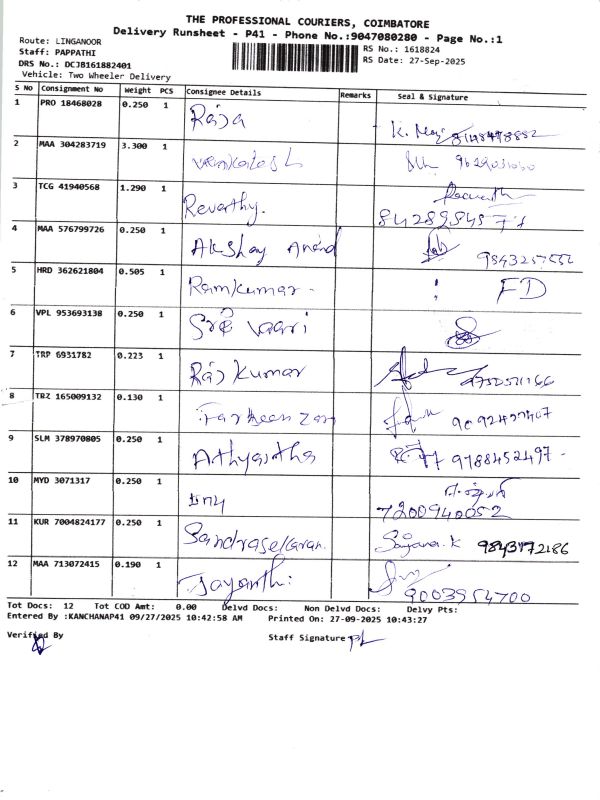 THE PROFESSIONAL COURIERS, COIMBATORE
Delivery Runsheet - P41 - Phone No.:9047080280 - Page No.:1
Route: LINGANOOR
RS No.: 1618824
Staff: PAPPATHI
RS Date: 27-Sep-2025
DRS No.: DCJB161882401
Vehicle: Two Wheeler Delivery
S No Consignment No Weight PCS Consignee Details Remarks Seal & Signature
1 PRO 18468028 0.250 1 Raja
2 MAA 304283719 3.300 1 Venkatesh
3 TCG 41940568 1.290 1 Revarthy.
4 MAA 576799726 0.250 1 Akshay Anand
5 HRD 362621804 0.505 1 Ramkumar - FD
6 VPL 953693138 0.250 1 Sree Vaari
7 TRP 6931782 0.223 1 Raj Kumar
8 TBZ 165009132 0.130 1
9 SLM 378970805 0.250 1 9788452497-
10 MYD 3071317 0.250 1
7200940052
11 KUR 7004824177 0.250 1 Sandrasekaran. Sanjana.K
12 MAA 713072415 0.190 1 Jayanthi.
9003954700
Tot Docs: 12 Tot COD Amt: 0.00 Delvd Docs: Non Delvd Docs: Delvy Pts:
Entered By :KANCHANAP41 09/27/2025 10:42:58 AM Printed On: 27-09-2025 10:43:27
Verified By Staff Signature